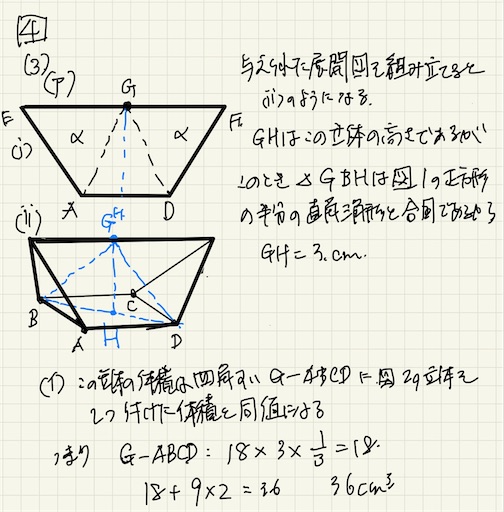 4
(3)
(ア)
G
E
F
(i)
α
α
A
D
(ii)
G
B
C
A
H
D
与えられた展開図を組み立てると
(ii)のようになる.
GHはこの立体の高さであるが
このとき △GBHは図1の正方形
の半分の直角三角形と合同であるから
GH=3.cm.
(イ) この立体の体積は四角すい G-ABCD に図2の立体を
2つ付けた体積と同値になる
つまり G-ABCD: 18×3×1/3=18.
18+9×2=36 36cm³